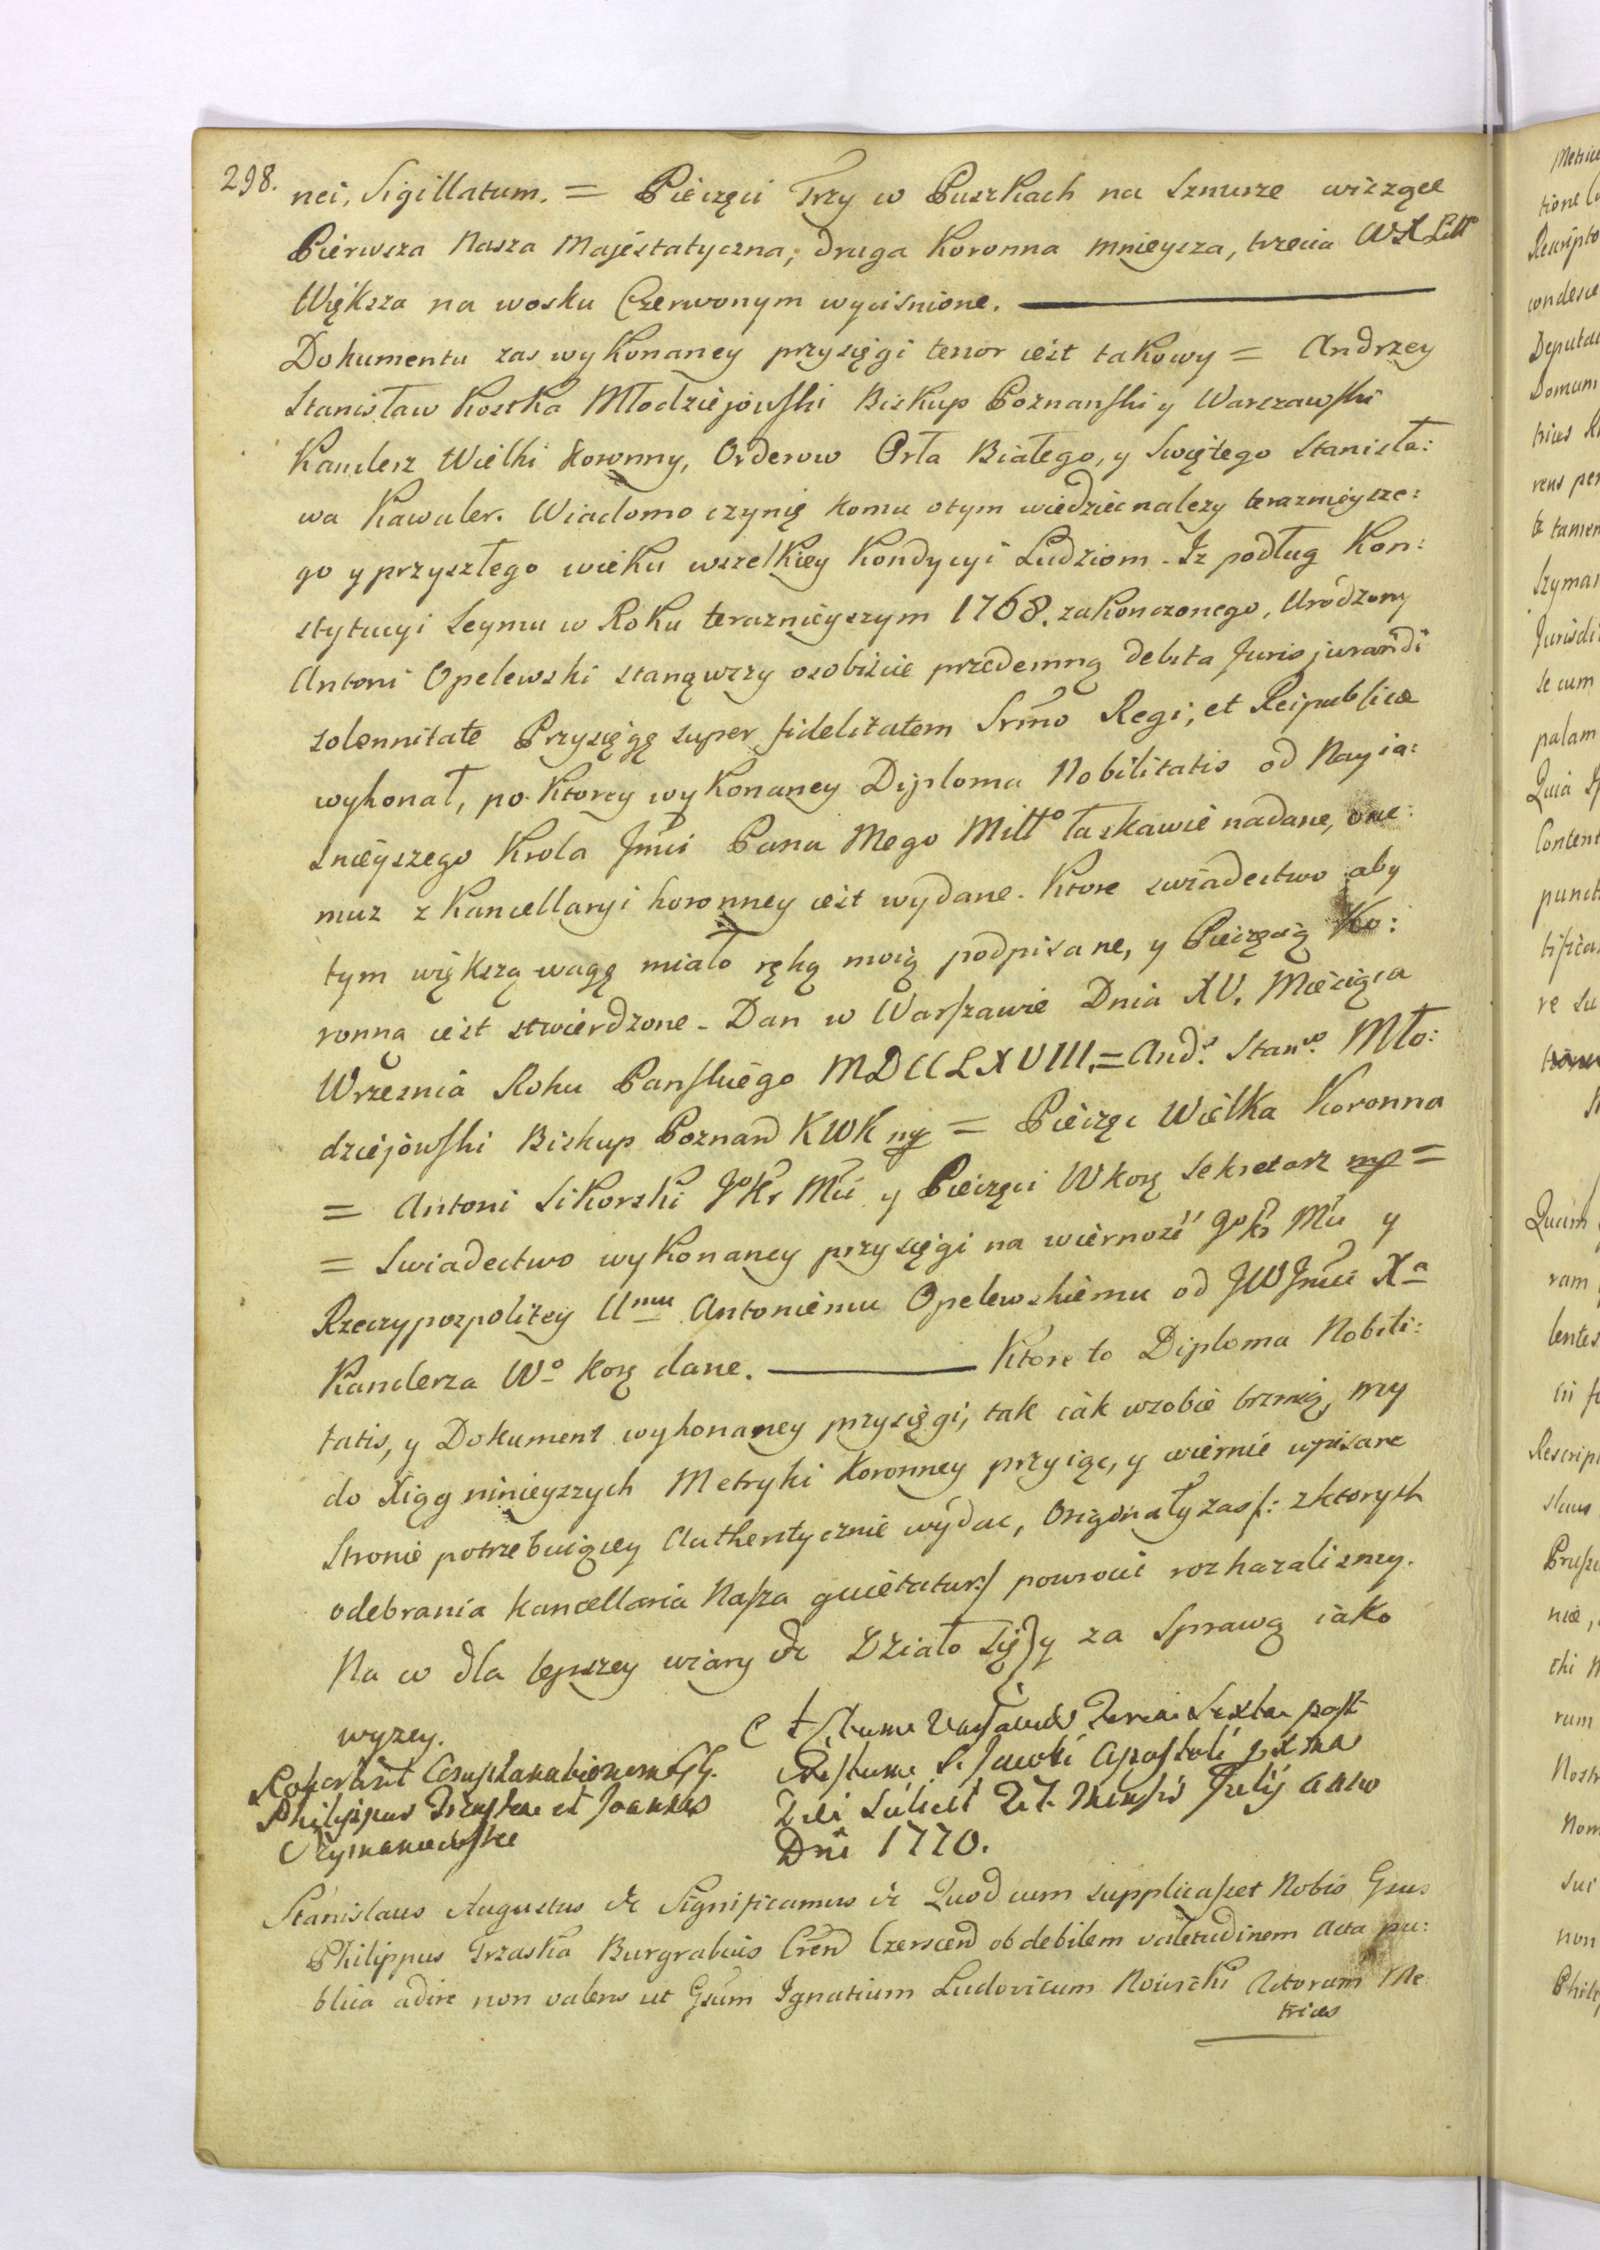 298.
nei, Sigillatum. = Pieczęci Trzy w Puszkach na sznurze wiszące
Pierwsza Nasza Majestatyczna, druga Koronna mnieysza, trzecia WXLitt
Większa na wosku Czerwonym wyciśnione. —
Dokumentu zas wykonaney przysięgi tenor iest takowy = Andrzey
Stanisław Kostka Młodziejowski Biskup Poznanski y Warszawski
Kanclerz Wielki Koronny, Orderow Orła Białego, y Swiętego Stanisła:
wa Kawaler. Wiadomo czynię komu otym wiedziec nalezy teraznieysze:
go y przyszłego wieku wszelkiey Kondycyi Ludziom. Iz podług Kon:
stytucyi Seymu w Roku teraznieyszym 1768. zakonczonego, Urodzony
Antoni Opelewski stanąwszy osobiscie przedemną debita Juris jurandi
solennitate Przysięgę super fidelitatem Srmo Regi, et Reipublicæ
wykonał, po ktorey wykonaney Diploma Nobilitatis od Nayia:
snieyszego Krola Jmci Pana Mego Miłto łaskawie nadane, one:
muz z Kancellaryi koronney iest wydane. Ktore swiadectwo aby
tym większą wagę miało ręką moią podpisane, y Pieczęcią Ko:
ronną iest stwierdzone. Dan w Warszawie Dnia XV. Miesiąca
Wrzesnia Roku Panskiego MDCCLXVIII. = Andr. Stanw. Mło:
dziejowski Biskup Poznan KWK mp = Pieczęc Wielka Koronna
= Antoni Sikorski JoKr Mci y Pieczęci WKorę Sekretarz mp =
= Swiadectwo wykonaney przysięgi na wiernosć JoKr Mci y
Rzeczypospolitey Umu Antoniemu Opelewskiemu od JWJmci Xa
Kanclerza Wo Korę dane. — Ktore to Diploma Nobili:
tatis, y Dokument wykonaney przysięgi, tak iak wsobie brzmią, my
do Xiąg ninieyszych Metryki Koronney przyiąc, y wiernie wpisane
Stronie potrzebuiącey Authentycznie wydac, Originały zas /: z ktorych
odebrania Kancellaria Nasza quietatur :/ powrocic rozkazalismy.
Na co dla lepszey wiary &c Działo się / y za Sprawą iako
wyzey.
Philippus Trzaska et Joannes
Szymanowski
Feria Sexta post
Festum S. Jacobi Apostoli
Die Scilicet 27. Mensis Julij Anno
Dni 1770.
Stanislaus Augustus &c Significamus &c Quod cum supplicasset Nobis Gsus
Philippus Trzaska Burgrabius Cren Czerscen ob debilem valetudinem Acta pu:
blica adire non valens ut Gsum Ignatium Ludovicum Nowicki Actorum Me
trices